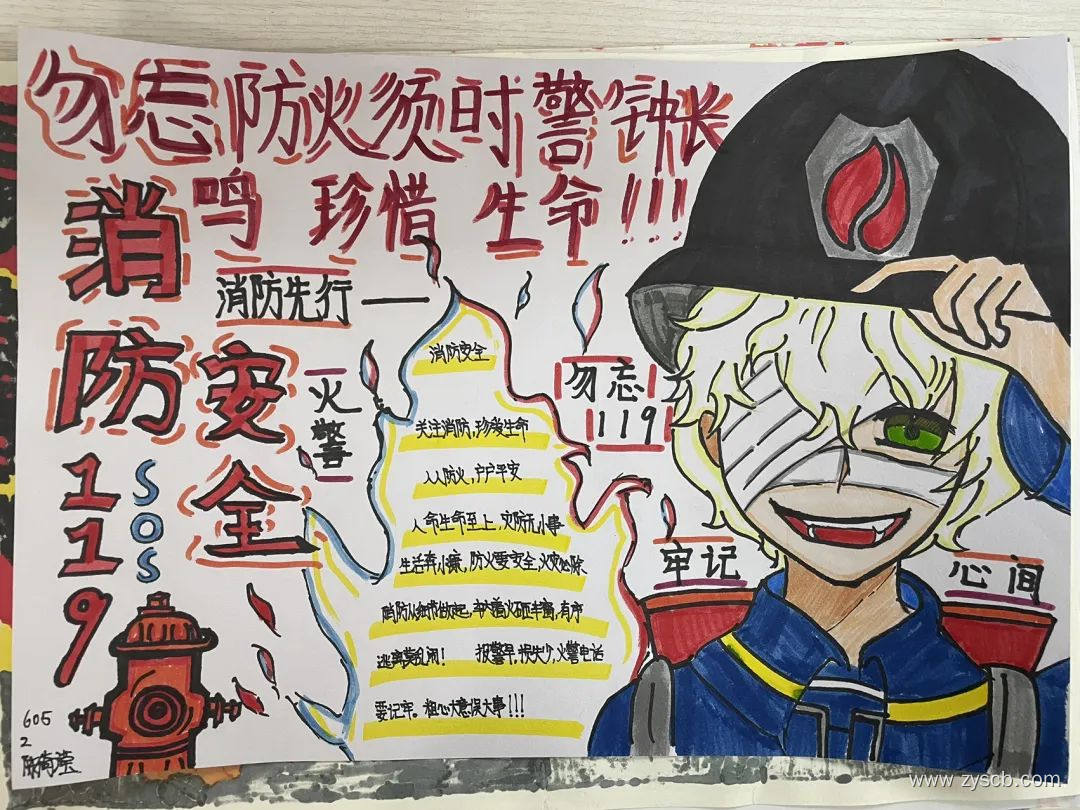 勿忘防火须时警钟长
鸣 珍惜 生命!!!
消防安全
119
SOS
消防先行——
火警
勿忘
119
牢记
心间
消防安全
关注消防,珍爱生命
人人防火,户户平安
人命生命至上,灾防无小事
生活奔小康,防火要安全,火灾必除
消防从细节做起,
逃离莫乱闹! 报警早,损失少,火警电话
要记牢。粗心大意误大事!!!
605
2
www.zyscb.com